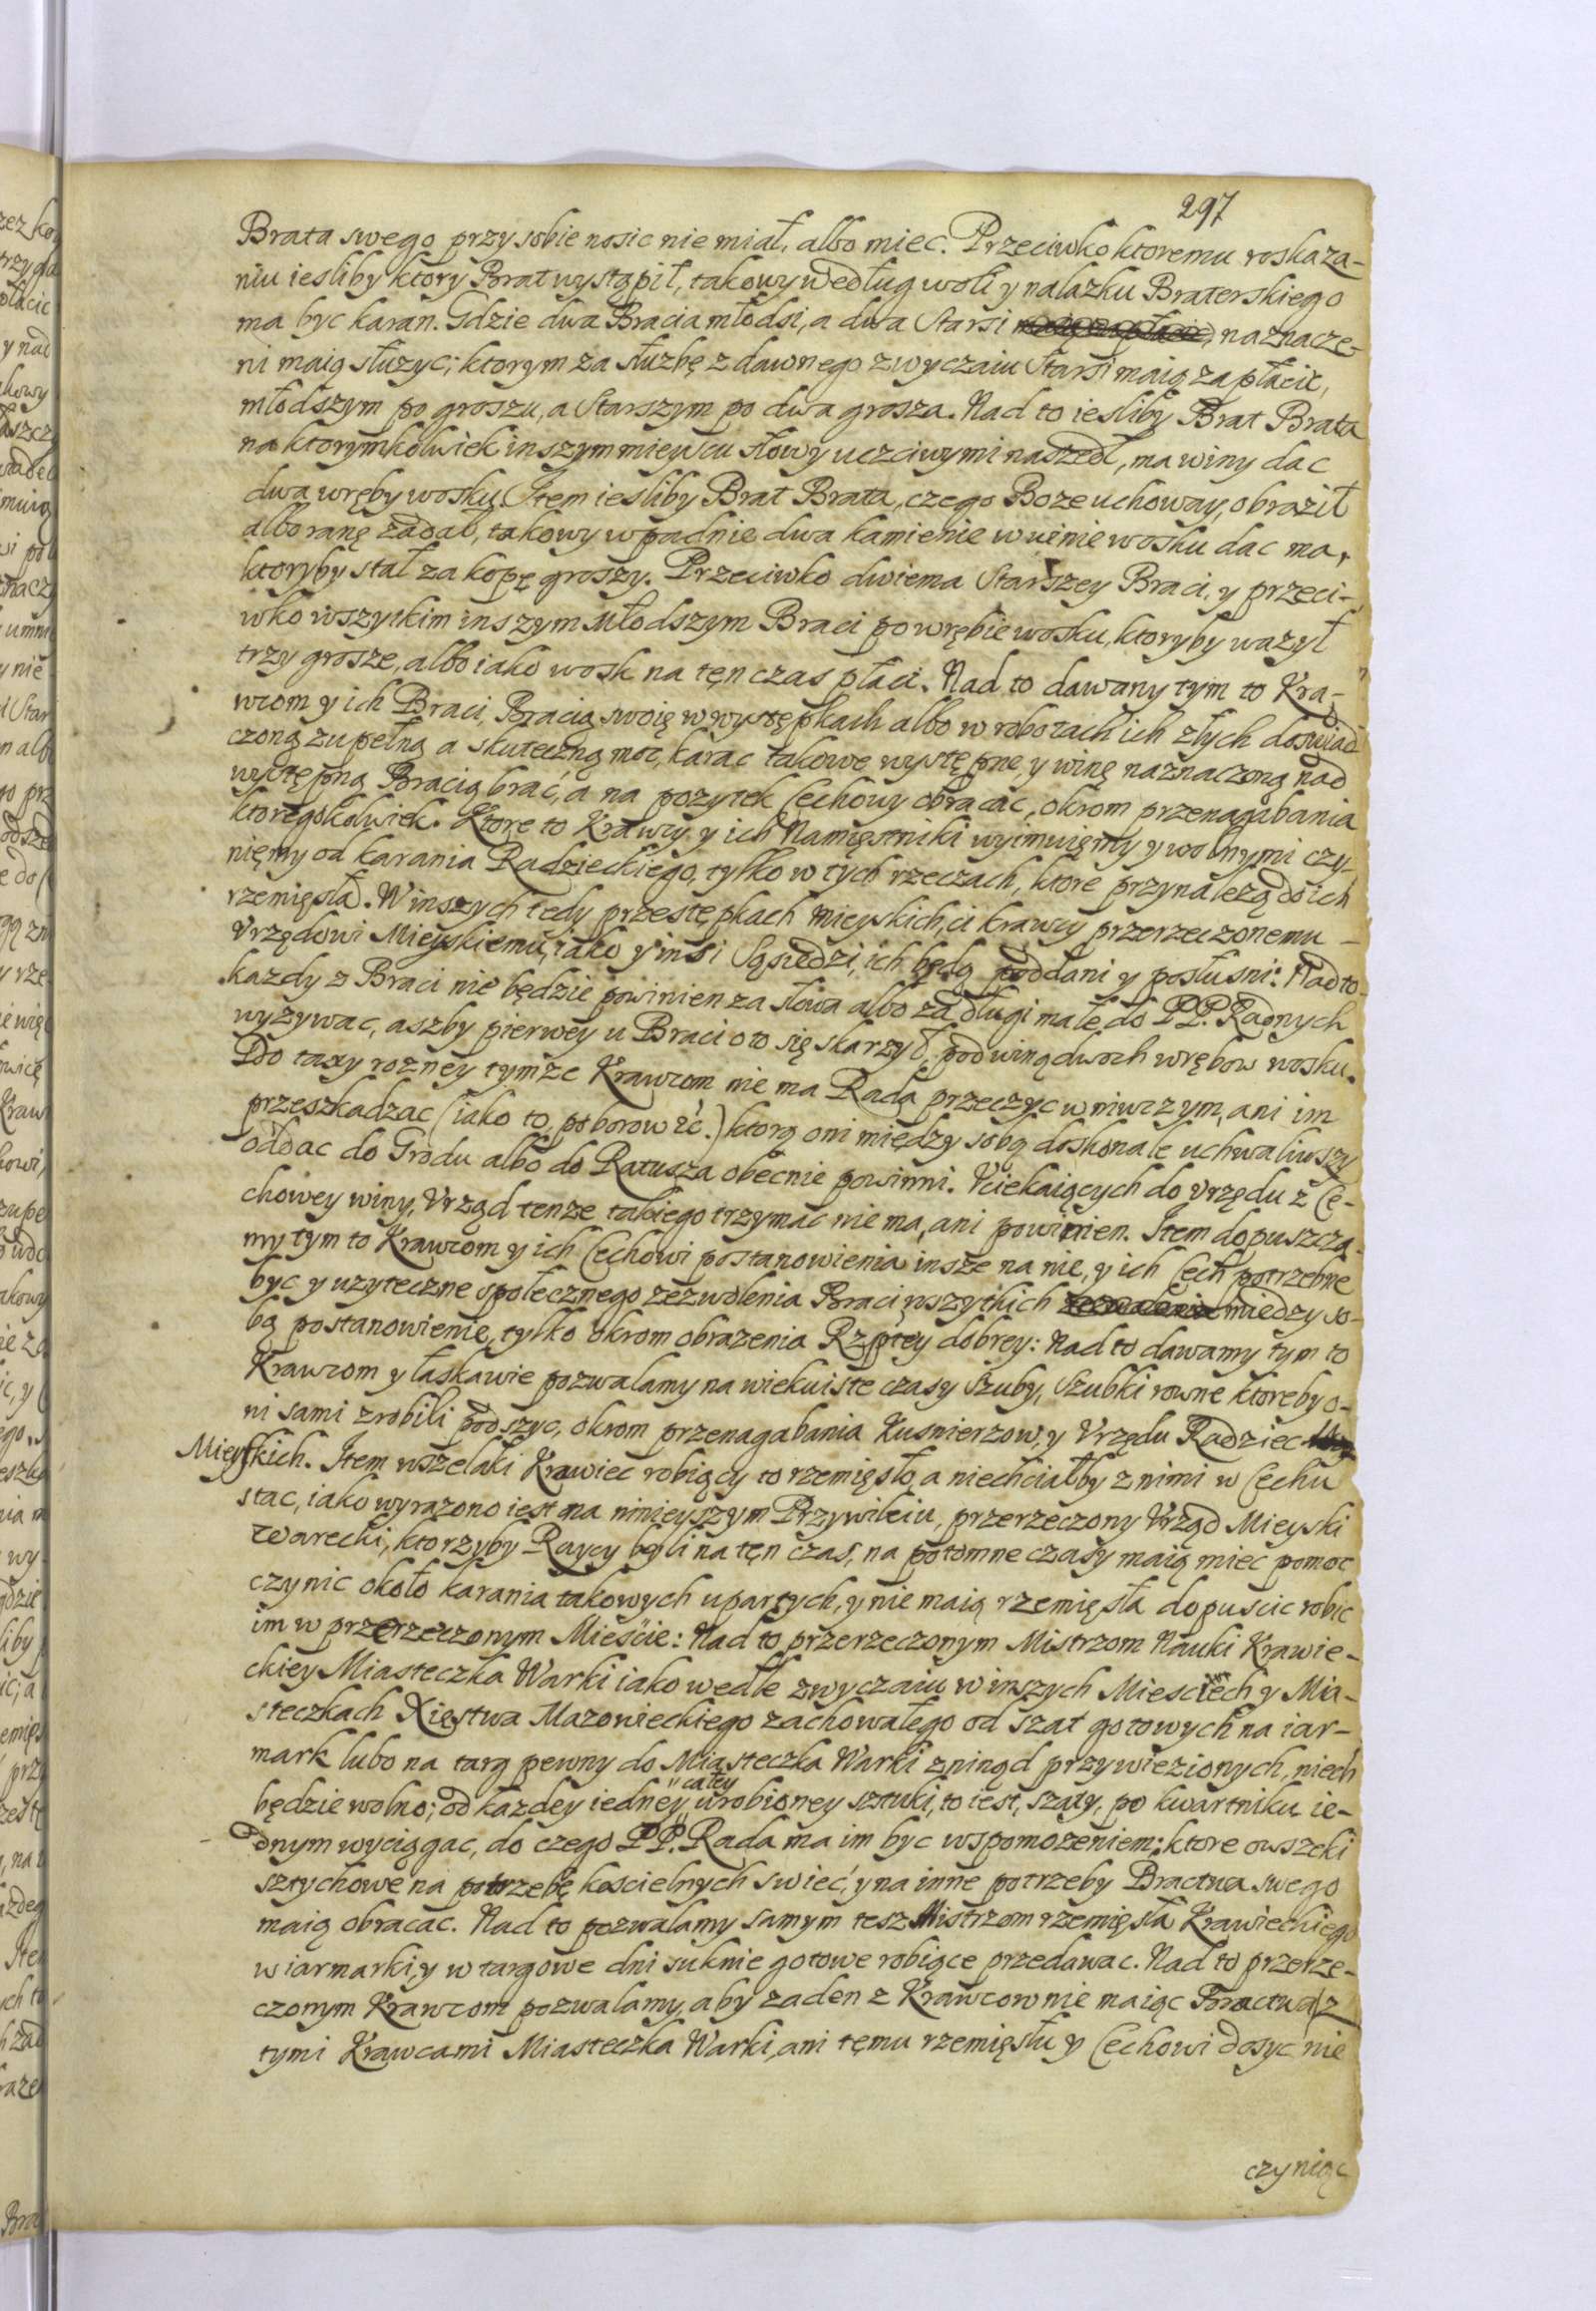 297
Brata swego przy sobie nosic nie miał, albo miec. Przeciwko ktoremu roskaza-
niu iesliby ktory Brat wystąpił, takowy według woli y nalazku Braterskiego
ma byc karan. Gdzie dwa Bracia młodsi, a dwa Starsi naznacze-
ni maią słuzyc; ktorym za słuzbę z dawnego zwyczaiu Starsi maią zapłacic,
młodszym po groszu, a Starszym po dwa grosza. Nad to iesliby Brat Brata
na ktorymkolwiek inszym mieyscu słowy uczciwymi naszedł, ma winy dac
dwa wręby wosku. Item iesliby Brat Brata, czego Boze uchoway, obraził
albo ranę zadał, takowy wpadnie dwa kamienie w winie wosku dac ma,
ktoryby stał za kopę groszy. Przeciwko dwiema Starszey Braci, y przeci-
wko wszytkim inszym Młodszym Braci po wrębie wosku, ktoryby wazył
trzy grosze, albo iako wosk na tęn czas płaci. Nad to dawany tym to Kra-
wcom y ich Braci, Bracią swoię w występkach albo w robotach ich złych doswiad
czoną zupełną a skuteczną moc, karac takowe występne, y winę naznaczoną nad
występną Bracią brać, a na pozytek Cechowy obracac, okrom przenagabania
ktoregokolwiek. Ktore to Krawcy y ich Namięstniki wyimuięmy y wolnymi czy-
nięmy od karania Radzieckiego, tylko w tych rzeczach, ktore przynalezą do ich
rzemięsła. W inszych tedy przestępkach mieyskich, ci krawcy przerzeczonemu
Vrzędowi Mieyskiemu, iako y insi Sąsiedzi, ich będą poddani y posłusni: Nad to
kazdy z Braci nie będzie powinien za słowa albo za długi małe do PP. Radnych
wyzywac, aszby pierwey u Braci o to się skarzył, pod winą dwoch wrębow wosku.
Do taxy rozney tymze Krawcom nie ma Rada przeczyc w niwczym, ani im
przeszkadzac (iako to, poborow &c.) ktorą oni między sobą doskonale uchwaliwszy
oddac do Grodu albo do Ratusza obecnie powinni. Vciekaiących do Vrzędu z Ce-
chowey winy, Vrząd tenze takiego trzymac nie ma, ani powinien. Item dopuszcza-
my tym to Krawcom y ich Cechowi postanowienia insze na nie, y ich Cech potrzebne
byc y uzyteczne społecznego zezwolenia Braci wszytkich miedzy so-
bą postanowienie, tylko okrom obrazenia Rzptey dobrey: Nad to dawamy tym to
Krawcom y łaskawie pozwalamy na wiekuiste czasy Szuby, Szubki rowne ktoreby o-
ni sami zrobili podszyc, okrom przenagabania Kusnierzow, y Vrzędu Radziec
Mieyskich. Item wszelaki Krawiec robiący to rzemięsło, a niechciałby z nimi w Cechu
stac, iako wyrazono iest na ninieyszym Przywileiu, przerzeczony Vrząd Mieyski
Warecki, ktorzyby Raycy byli na tęn czas, na potomne czasy maią miec pomoc
czynic około karania takowych upartych, y nie maią rzemięsła dopuscic robic
im w przerzeczonym Mieście: Nad to przerzeczonym Mistrzom Nauki Krawie-
ckiey Miasteczka Warki iako wedle zwyczaiu w inszych Miesciech y Mia-
steczkach Xięstwa Mazowieckiego zachowałego od szat gotowych na iar-
mark lubo na targ pewny do Miasteczka Warki zninąd przywiezionych, niech
będzie wolno; od kazdey iedney całey urobioney sztuki, to iest, szaty, po kwartniku ie-
dnym wyciągac, do czego PP. Rada ma im byc wspomozeniem; ktore owszeki
sztychowe na potrzebę koscielnych swieć, y na inne potrzeby Bractwa swego
maią obracac. Nad to pozwalamy samym tesz Mistrzom rzemięsła Krawieckiego
w iarmarki, y w targowe dni suknie gotowe robiące przedawac. Nad to przerze-
czonym Krawcom pozwalamy, aby zaden z Krawcow nie maiąc Bractwa z
tymi Krawcami Miasteczka Warki, ani tęmu rzemięsłu y Cechowi dosyc nie
czyniąc